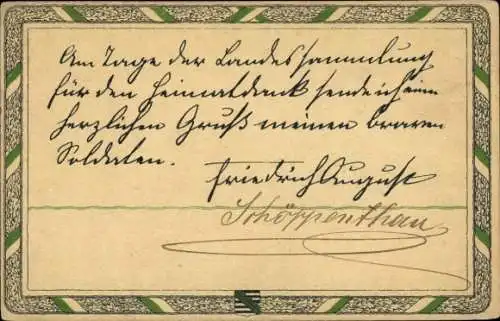 Am Tage der Landessammlung
für den Heimatdank sende ich einen
herzlichen Gruß meinen braven
Soldaten.
Friedrich August
Schöppenthau